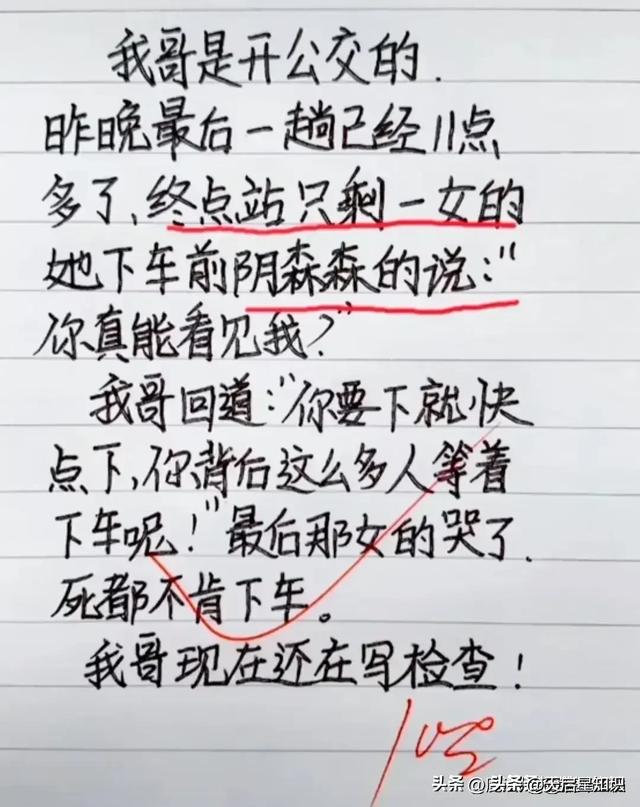 我哥是开公交的.
昨晚最后一趟已经11点
多了,终点站只剩一女的
她下车前阴森森的说:"
你真能看见我?"
我哥回道:"你要下就快
点下,你背后这么多人等着
下车呢!"最后那女的哭了.
死都不肯下车。
我哥现在还在写检查!
100
头条